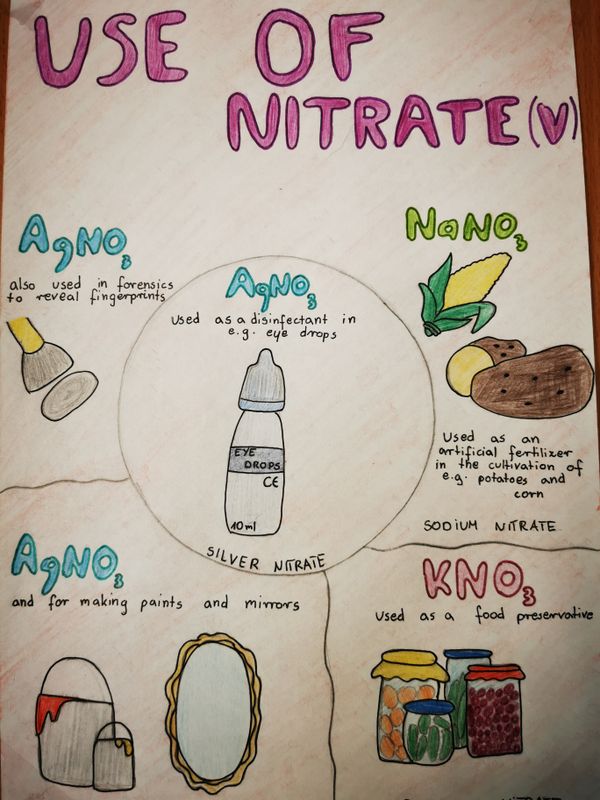 USE OF
NITRATE (V)
AgNO3
also used in forensics
to reveal fingerprints
AgNO3
Used as a disinfectant in
e.g. eye drops
EYE
DROPS
CE
10ml
SILVER NITRATE
NaNO3
Used as an
artificial fertilizer
in the cultivation of
e.g. potatoes and
corn
SODIUM NITRATE
AgNO3
and for making paints and mirrors
KNO3
Used as a food preservative